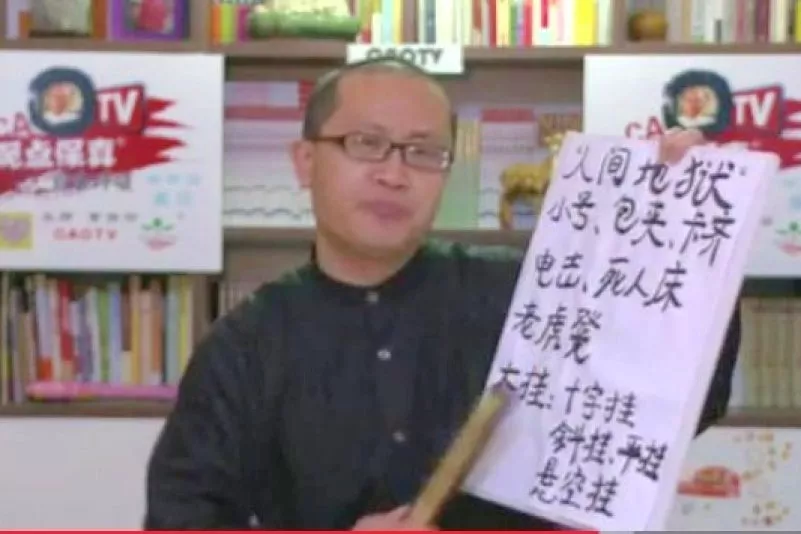 CAOTV
TV
点保真
CAOTV
人间地狱
小号、包夹、
电击、死人床
老虎凳
大挂:十字挂
斜挂、平挂
悬空挂